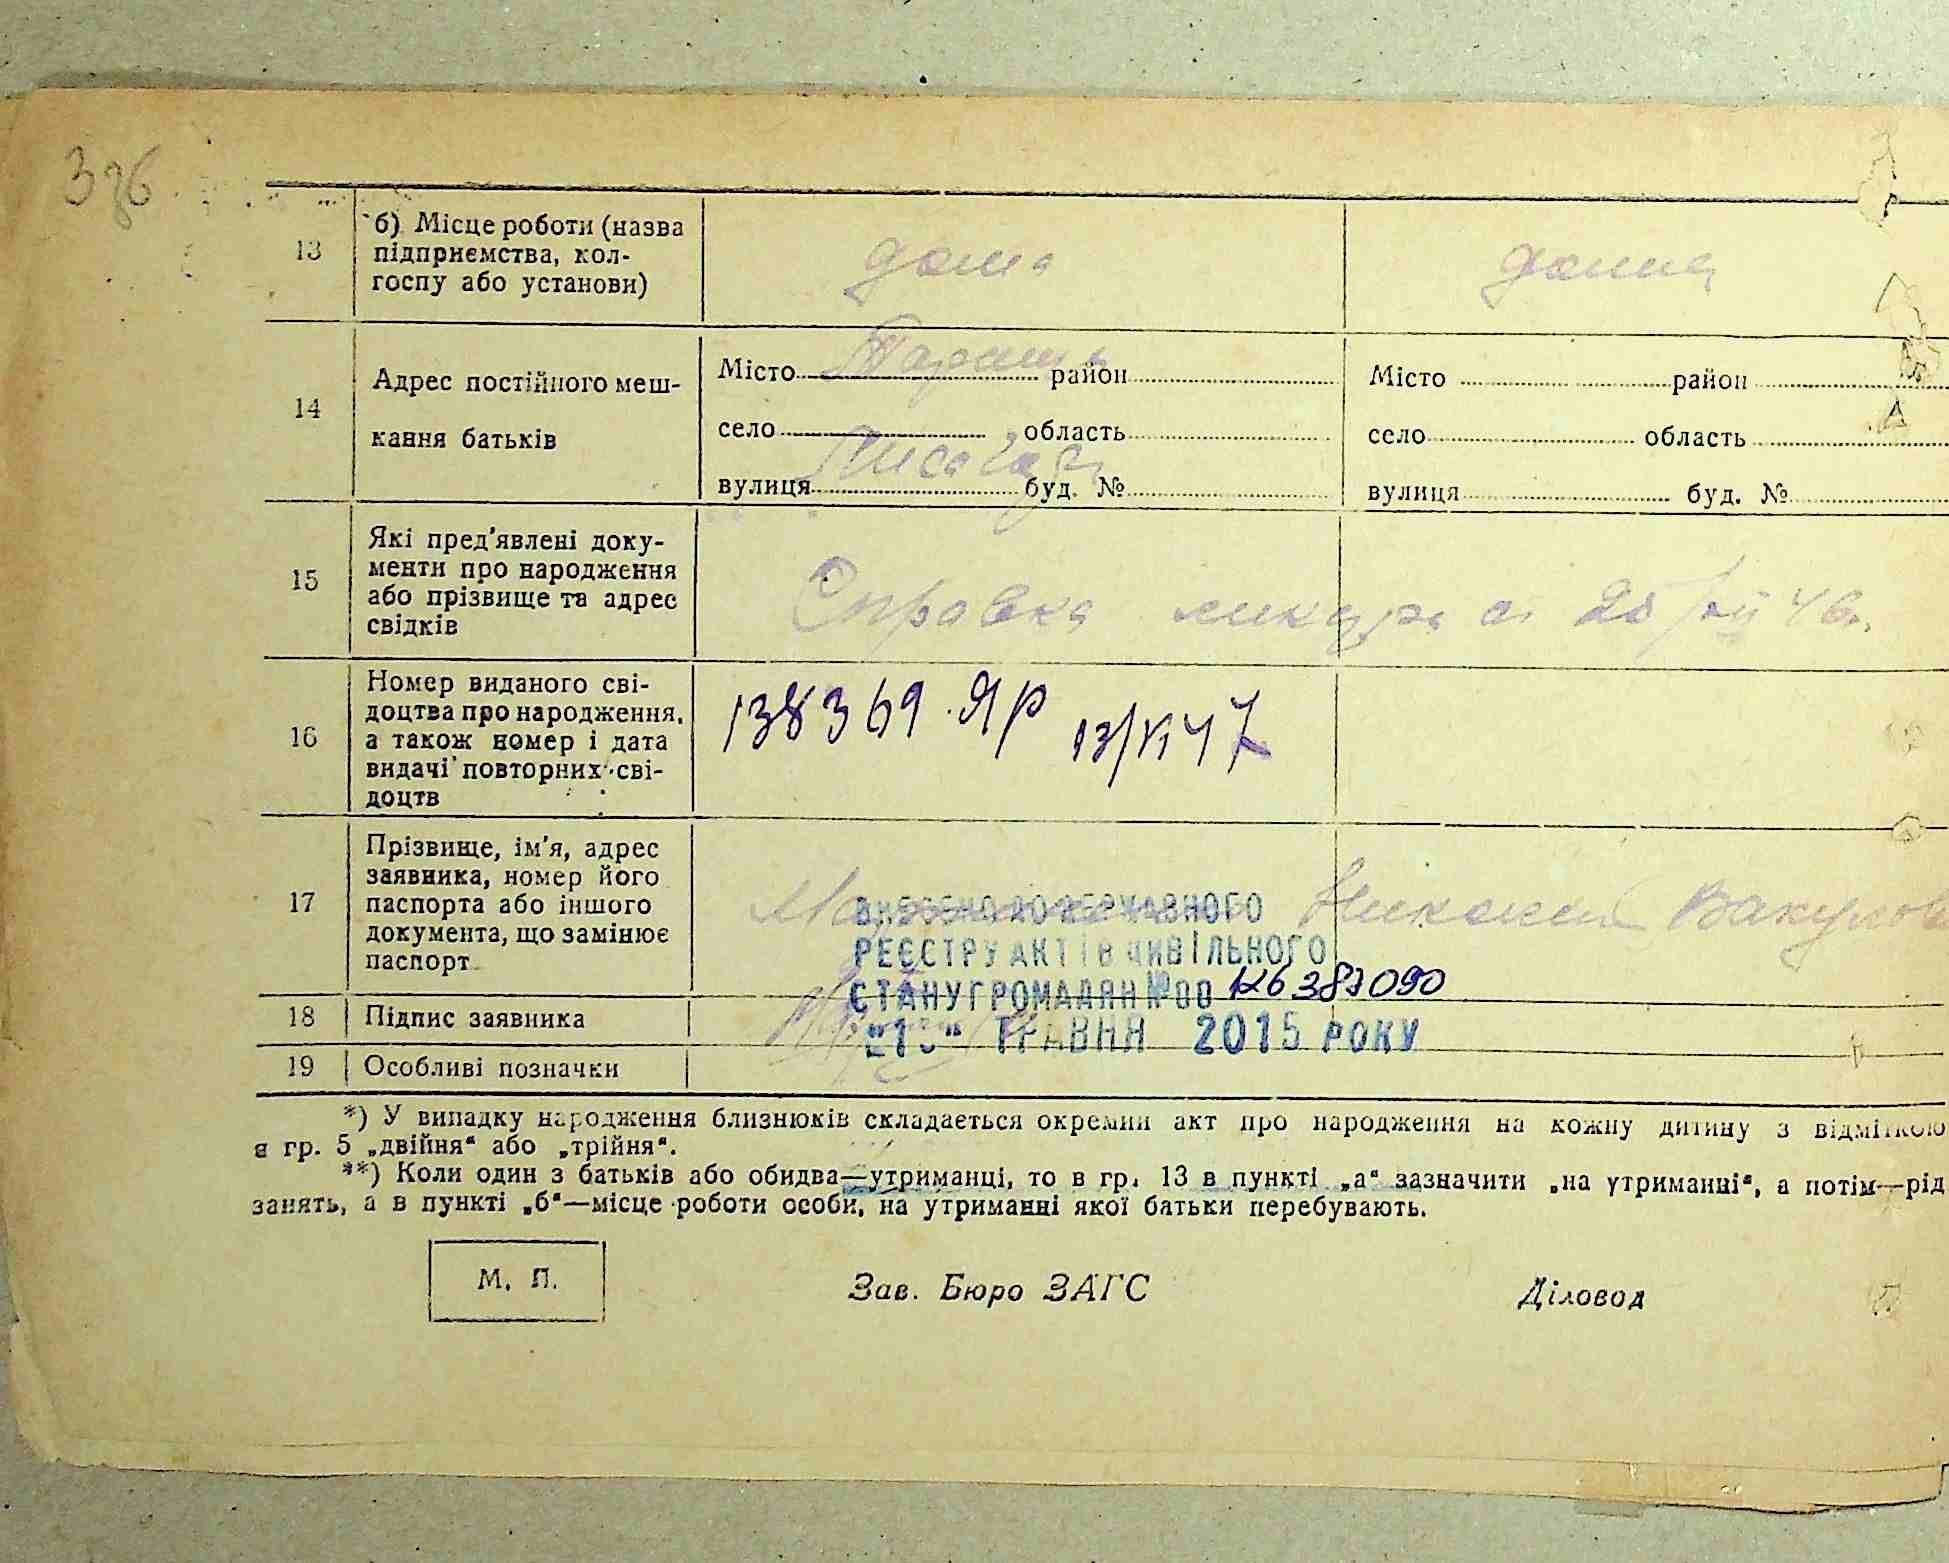 376
13
б) Місце роботи (назва
підприємства, кол-
госпу або установи)
дома
дома
14
Адрес постійного меш-
кання батьків
Місто Тараща район
село область
вулиця буд. №
Місто район
село область
вулиця буд. №
15
Які пред'явлені доку-
менти про народження
або прізвище та адрес
свідків
Справка
16
Номер виданого сві-
доцтва про народження,
а також номер і дата
видачі повторних сві-
доцтв
138369 ЯР 13/VI 47
17
Прізвище, ім'я, адрес
заявника, номер його
паспорта або іншого
документа, що замінює
паспорт
Николай Вакулов
ВНЕСЕНО ДО ДЕРЖАВНОГО
РЕЄСТРУ АКТІВ ЦИВІЛЬНОГО
СТАНУ ГРОМАДЯН №00 126383090
ТРАВНЯ 2015 РОКУ
18
Підпис заявника
19
Особливі позначки
*) У випадку народження близнюків складається окремий акт про народження на кожну дитину з відміткою
в гр. 5 „двійня“ або „трійня“.
**) Коли один з батьків або обидва—утриманці, то в гр. 13 в пункті „а“ зазначити „на утриманні“, а потім—рід
занять, а в пункті „б“—місце роботи особи, на утриманні якої батьки перебувають.
М. П.
Зав. Бюро ЗАГС
Діловод